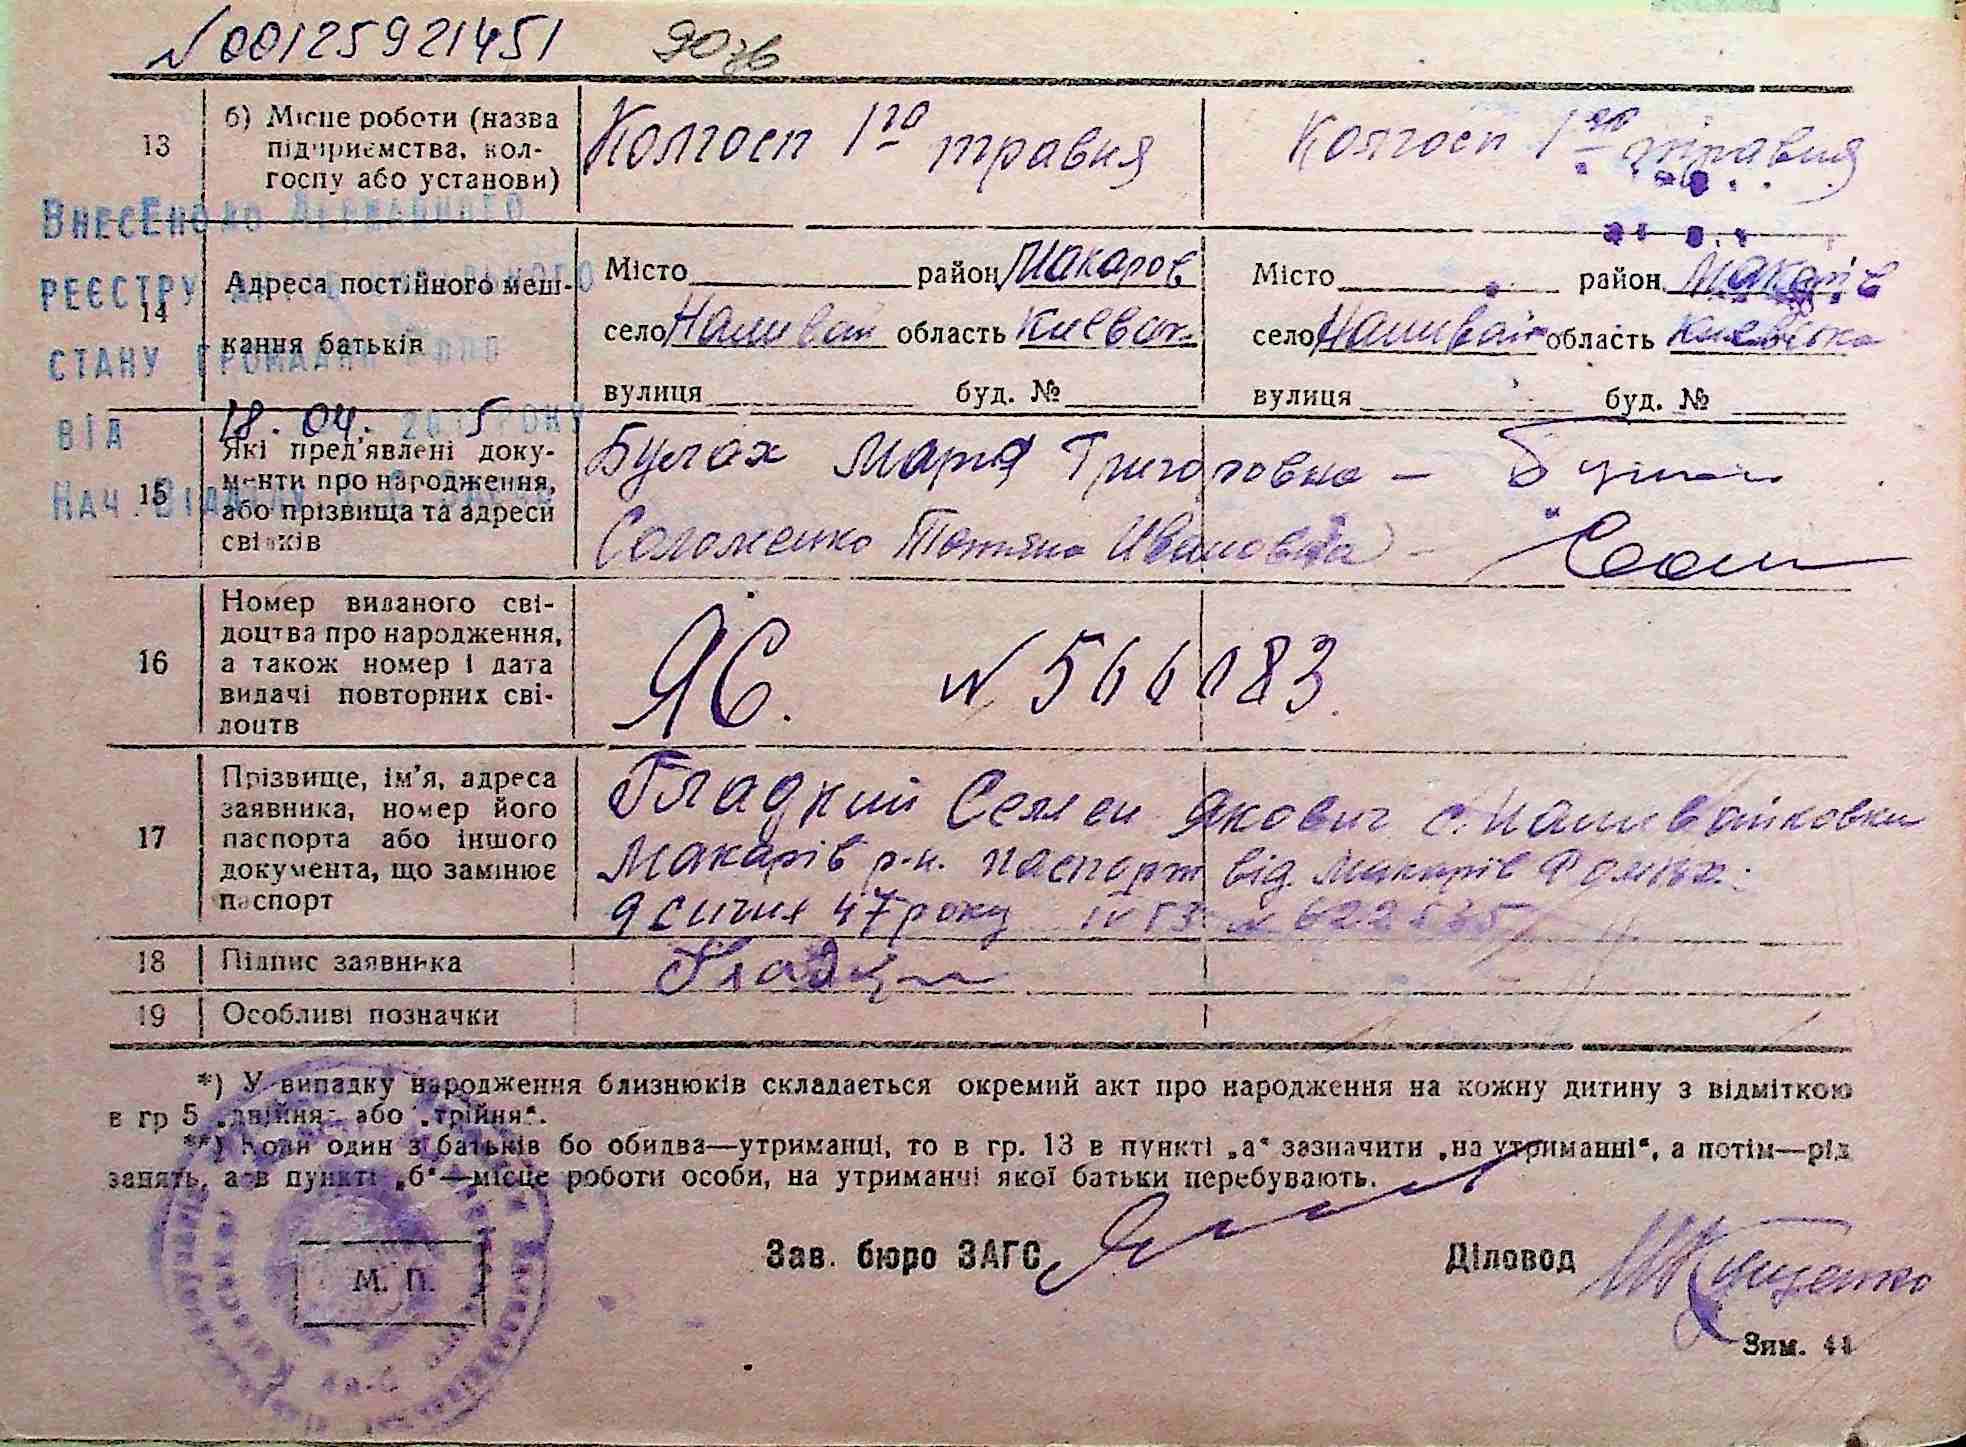 №00125921451
13 б) Місце роботи (назва
підприємства, кол-
госпу або установи)
Колгосп 1го травня Колгосп 1го травня
ВнесЕно до Державного
РЕЄСТРУ
СТАНУ ГРОМАДЯН
ВІД 18.04. 2015 РОКУ
Нач. Відділу
14 Адреса постійного меш-
кання батьків
Місто район Макаров Місто район Макарів
село Наливай область Киевск село Наливай область Киевська
вулиця буд. № вулиця буд. №
15 Які пред'явлені доку-
менти про народження,
або прізвища та адреси
свідків
Булах Мария Григоровна –
Соломенко Татяна Ивановна –
16 Номер виданого сві-
доцтва про народження,
а також номер і дата
видачі повторних сві-
доцтв
ЯС. № 566183.
17 Прізвище, ім'я, адреса
заявника, номер його
паспорта або іншого
документа, що замінює
паспорт
Гладкий Семен Якович с. Наливайковки
Макарів р-н. паспорт від. Макарів
9 січня 47 року
18 Підпис заявника
Гладкий
19 Особливі позначки
*) У випадку народження близнюків складається окремий акт про народження на кожну дитину з відміткою
в гр 5 „двійня“ або „трійня“.
**) Коли один з батьків бо обидва—утриманці, то в гр. 13 в пункті „а“ зазначити „на утриманні“, а потім—рід
занять, а в пункті „б“—місце роботи особи, на утриманчі якої батьки перебувають.
М. П.
Зав. бюро ЗАГС Діловод
Зим. 44